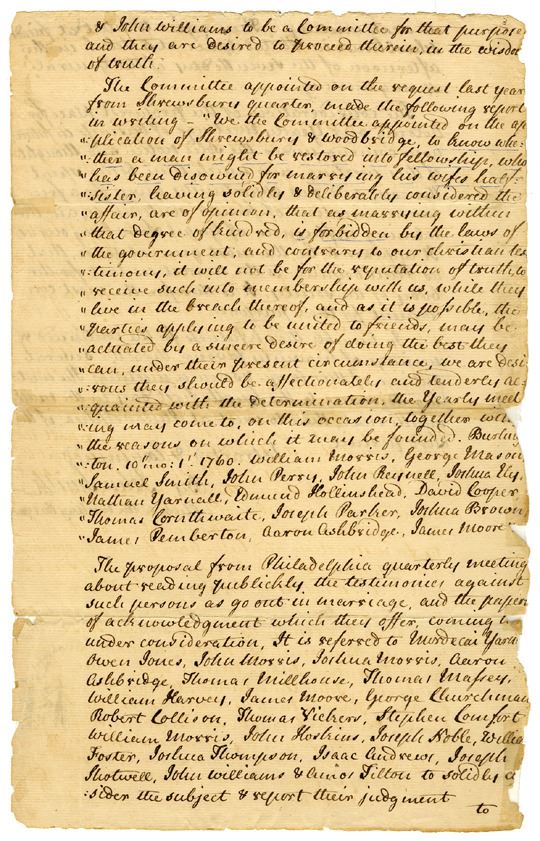 & John Williams to be a Committee for that purpose
and they are desired to proceed therein, in the wisdo
of truth.
The Committee appointed on the request last year
from Shrewsbury quarter, made the following report
in writing – "We the Committee appointed on the ap
"plication of Shrewsbury & Woodbridge, to know whe-
"ther a man might be restored into fellowship, who
"has been disowned for marrying his wifes half-
":sister, having solidly & deliberately considered the
"affair, are of opinion, that as marrying within
"that degree of kindred, is forbidden by the laws of
"the government, and contrary to our christian tes
":timony, it will not be for the reputation of truth, to
"receive such into membership with us, while they
"live in the breach thereof, and as it is possible, the
"parties applying to be united to friends, may be
"actuated by a sincere desire of doing the best they
"can, under their present circumstance, we are desi
":rous they should be affectionately and tenderly ac-
":quainted with the determination, the Yearly meet
":ing may come to, on this occasion, together with
"the reasons on which it may be founded. Burling
"ton. 10th mo: 1st 1760. William Morris, George Mason
"Samuel Smith, John Perry, John Reynell, Joshua Ely,
"Nathan Yarnall, Edmund Hollinshead, David Cooper,
"Thomas Cornthwaite, Joseph Parker, Joshua Brown
"James Pemberton, Aaron Ashbridge, James Moore"
The proposal from Philadelphia quarterly meeting
about reading publickly the testimonies against
such persons as go out in marriage, and the papers
of acknowledgment which they offer, coming to
under consideration, It is referred to Mordecai Yarn
Owen Jones, John Morris, Joshua Morris, Aaron
Ashbridge, Thomas Millhouse, Thomas Massey,
William Harvey, James Moore, George Churchman
Robert Collison, Thomas Vickers, Stephen Comfort
William Morris, John Hoskins, Joseph Noble, Willia
Foster, Joshua Thompson, Isaac Andrews, Joseph
Shotwell, John Williams & Amos Tilton to solidly c
:sider the subject & report their judgment
to